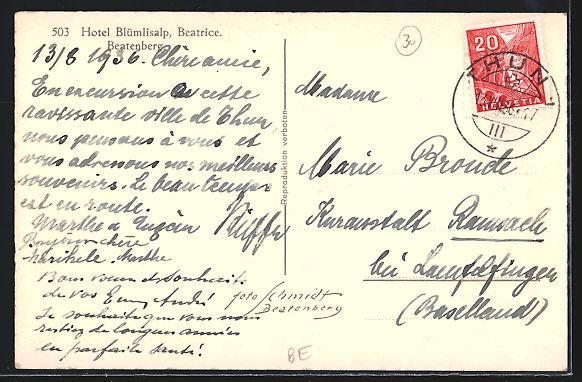 503 Hotel Blümlisalp, Beatrice.
Beatenberg
13/8 1936. Chère amie,
En excursion à cette
ravissante ville de Thun
nous pensons à vous et
vous adressons nos meilleurs
souvenirs. Le beau temps
est en route.
Marthe
Bonjour chère
Marthe
Bons voeux et souhaits
de vos
Je souhaite que vous nous
restiez de longues années
en parfaite santé!
foto Schmidt
Beatenberg
Reproduktion verboten
30
20
HELVETIA
THUN 1
III
Madame
Marie Brodde
Kuranstalt Ramsach
bei Läufelfingen
(Baselland)
BE